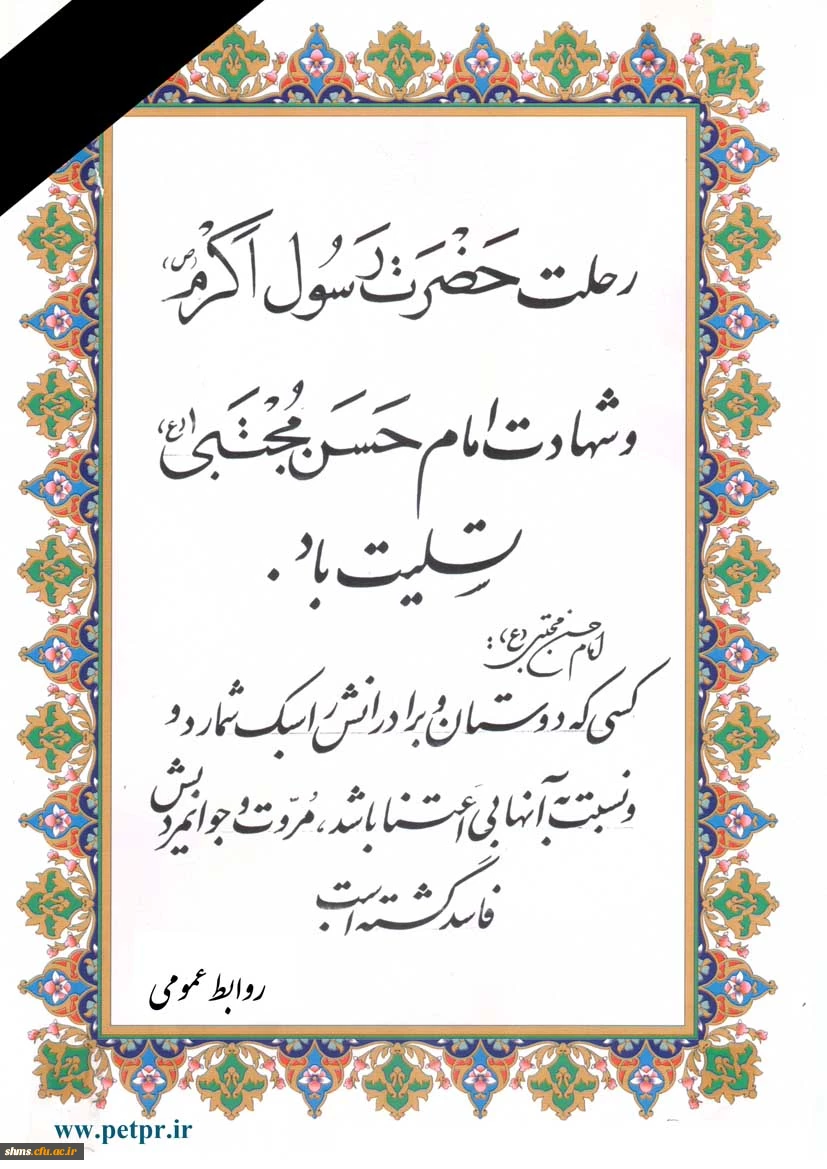 رحلت حَضْرَت رَسُول اَكْرَم (ص)
و شهادت امام حَسَن مُجْتَبَی (ع)
تسِلیت باد.
امام حسن مجتبی (ع):
کسی که دوستان و برادرانش را سبک شمارد و
و نسبت به آنها بی اعتنا باشد، مُرّوت و جوانمردیش
فاسد گشته است
روابط عمومی
ww.petpr.ir
shns.cfu.ac.ir